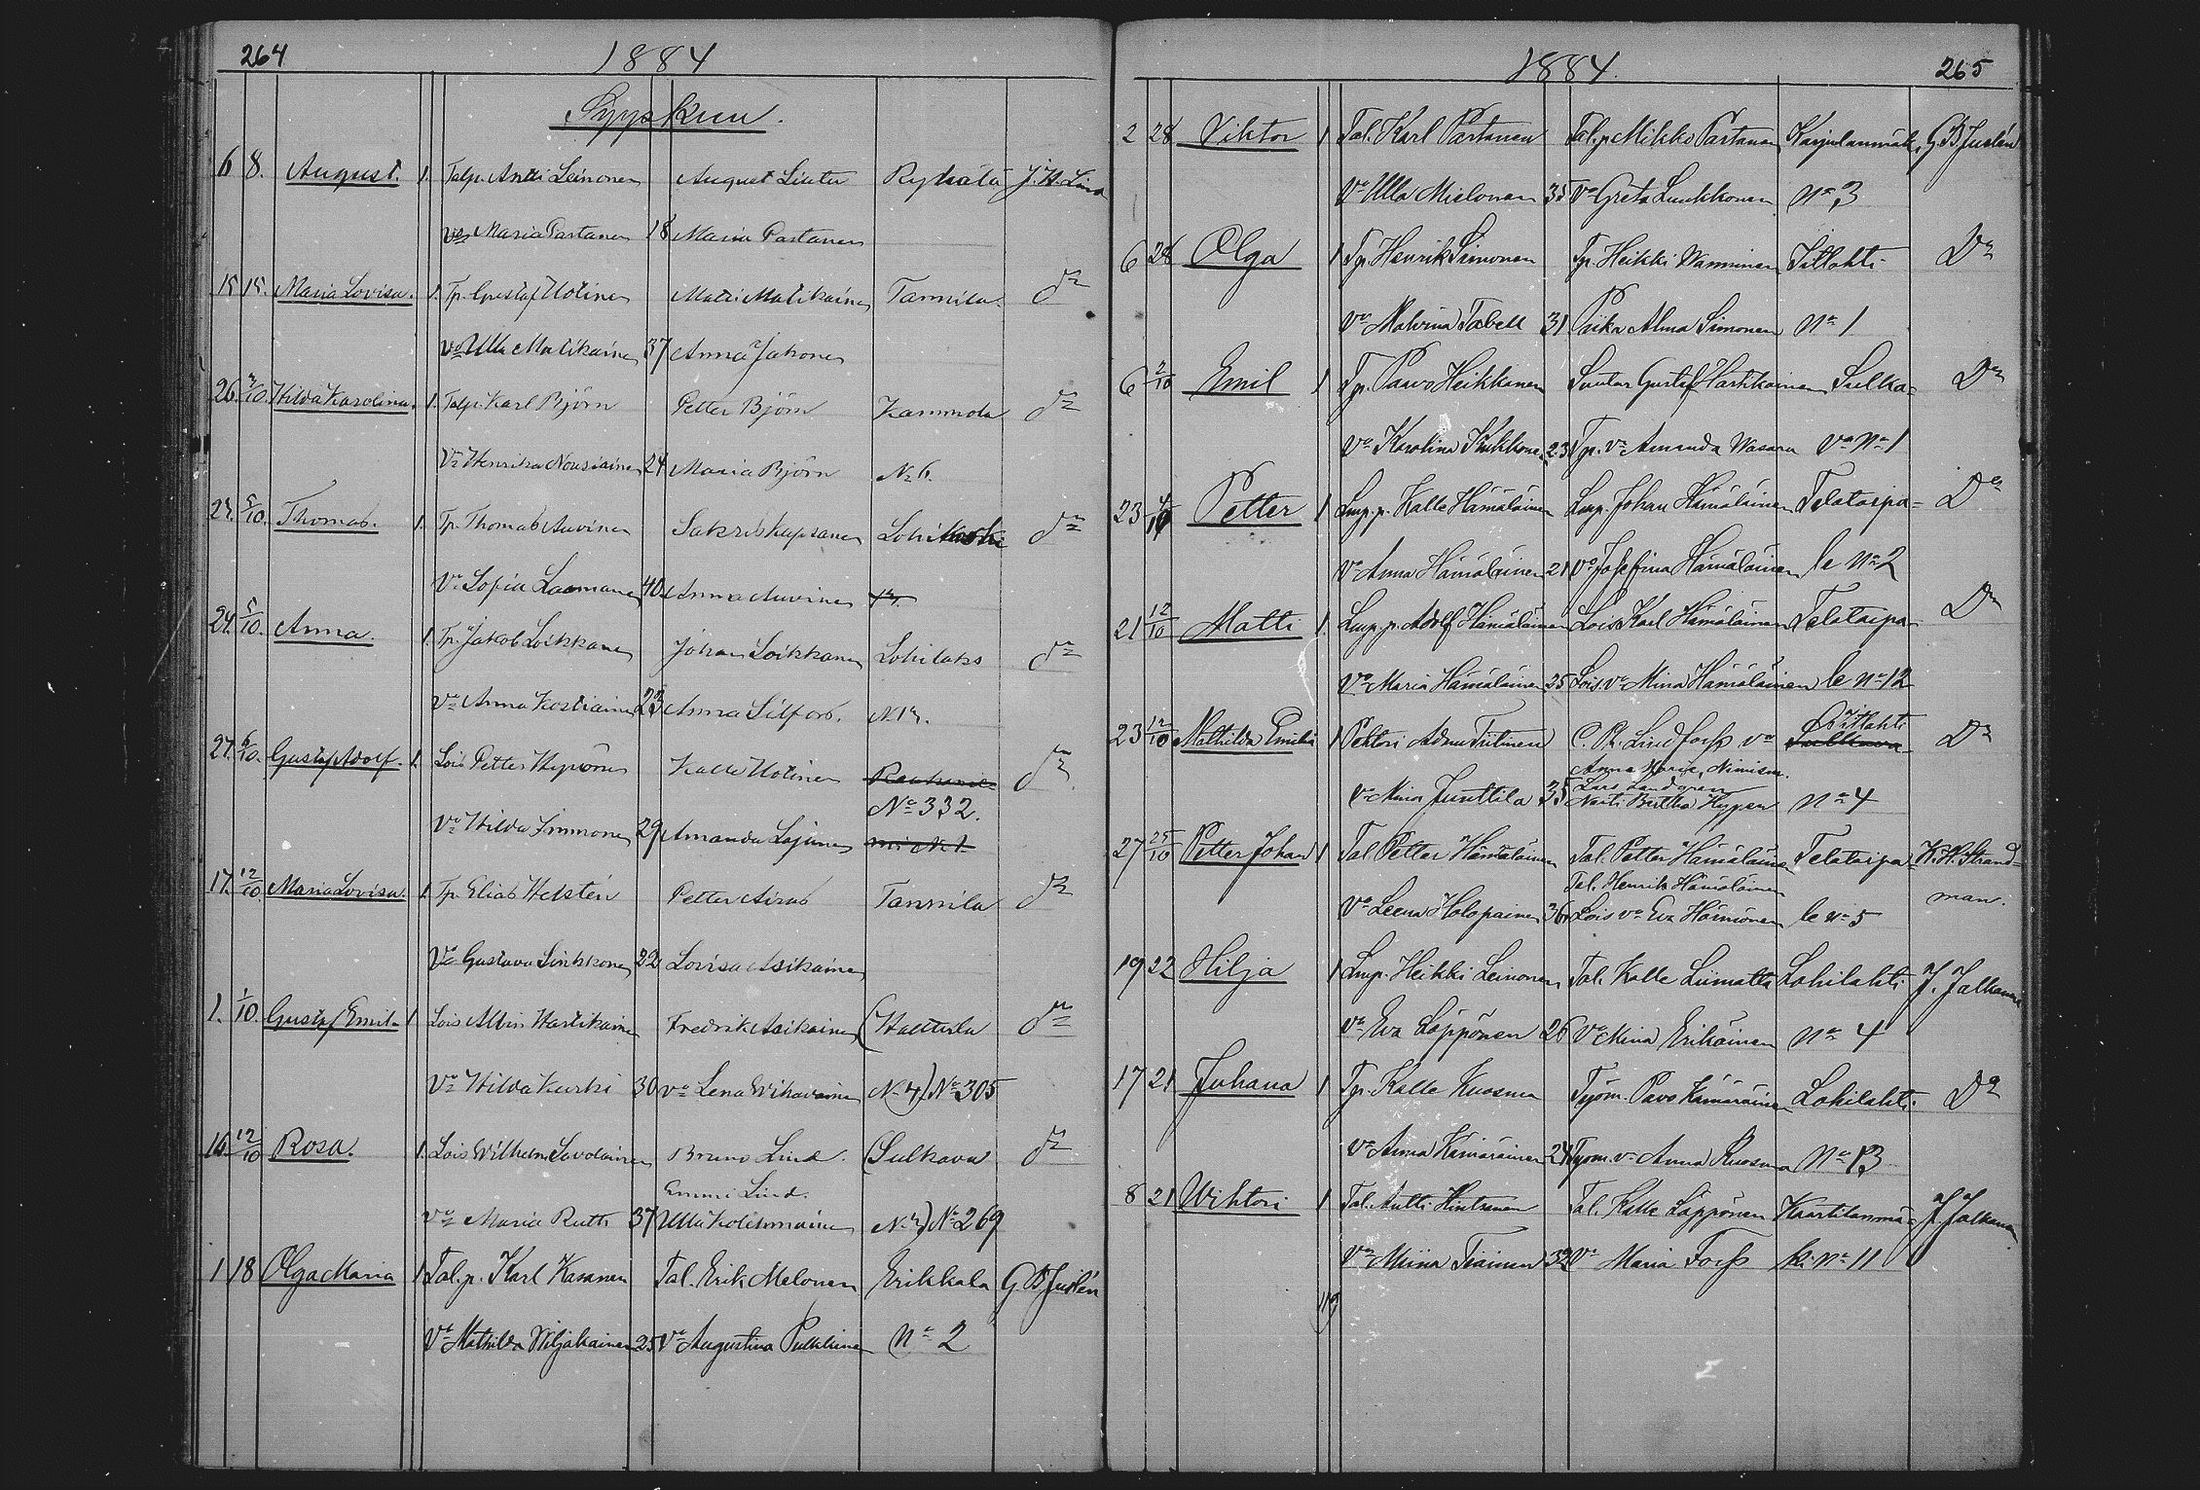 264 1884
Syyskuu.
6 8. August. 1. Talp. Antti Leinonen August Liuta Rykälä J. H. Lind
vo Maria Partanen 18 Maria Partanen
15 15. Maria Lovisa. 1. Tp. Gustaf Uotinen Matti Matikainen Tannila. do
vo Ulla Matikainen 37 Anna Jakonen
26. 3/10. Hilda Karolina. 1. Talp. Karl Björn Petter Björn Kammola do
Vo Henrika Nousiainen 24 Maria Björn No 6.
5/10. Thomas. 1. Tp. Thomas Auvinen Sakris Kupsanen do
Vo Sofia Laamanen 40 Anna Auvinen
24. 5/10. Anna. 1. Tp. Jakob Loikkanen Johan Loikkanen Lohilaks do
Vo Anna Kostiainen 23 Anna Silfors.
27. 6/10. Gustaf Adolf. 1. Lois Petter Hyvönen Kalle Uotinen do
No 332.
Vo Hilda Immonen 29 Amanda Lajunen
17. 12/10. Maria Lovisa. 1. Tp. Elias Helstén Petter Airas Tannila do
Vo Gustava Sinkkonen 22 Lovisa Asikainen
1. 1/10. Gustaf Emil 1 Lois Albin Hartikainen Fredrik Asikainen (Halttula do
Vo Hilda Kurki 30 vo Lena Wihavainen No 4) No 305
16. 12/10 Rosa. 1. Lois Wilhelm Savolainen Bruno Lind. (Sulkava do
Emmi Lind.
vo Maria Ruth 37 Ulla Kolehmainen No 269
1 18 Olga Maria 1 Tal. p. Karl Kasanen Tal. Erik Melonen Erikkala G. B. Juslén
Vo Mathilda Wiljakainen 25 Vo Augustina Pulkkinen No 2
1884. 265
2 28 Viktor 1 Tal. Karl Partanen Tal. p. Mikko Partanen Karjulanmäki G. B. Juslén
Vo Ulla Mielonen 35 Vo Greta Luukkonen No 3
6 28 Olga 1 Tp. Henrik Simonen Tp. Heikki Wanninen Iitlahti Do
Vo Malvina Tabell 31 Piika Alma Simonen No 1
6 2/10 Emil 1 Tp. Pavo Heikkinen Suutar Gustaf Hartikainen Sulka- Do
Vo Karolina Kukkonen 23 Tp. vo Amanda Wasara va No 1
23 4/10 Petter 1 Lmp. p. Kalle Hämäläinen Lmp. Johan Hämäläinen Telataipa- Do
Vo Anna Hämäläinen 21 Vo Josefina Hämäläinen le No 2
21 12/10 Matti 1. Lmp. p. Adolf Hämäläinen Lois Karl Hämäläinen Telataipa- Do
Vo Maria Hämäläinen 25 Lois. vo Mina Hämäläinen le No 12
23 12/10 Mathilda Emilia 1 Adam Tiitinen C. R. Lindforss vo Iitlahti Do
Anna Maria,
vo Mina Junttila 35 No 4
27 25/10 Petter Johan 1 Tal Petter Hämäläinen Tal. Petter Hämäläinen Telataipa- K. H. Strand-
Tal. Henrik Hämäläinen
Vo Leena Holopainen 36 Lois vo Eva Härmönen le No 5 man.
19 22 Hilja 1 Lmp. Heikki Leinonen Tal. Kalle Liimatta Lohilahti J. Jalkanen
vo Eva Läppönen 26 Vo Mina Erikäinen No 4
17 21 Juhana 1 Tp. Kalle Kuosma Työm. Pavo Kämäräinen Lohilahti Do
Vo Anna Kämäräinen 24 Työm. vo Anna Kuosma No 13
8 21 Wihtori 1 Tal. Antti Hintsanen Tal. Kalle Läppönen Kaartilanmä- J. Jalkanen
Vo Miina Tiainen 32 Vo Maria Forss ki No 11